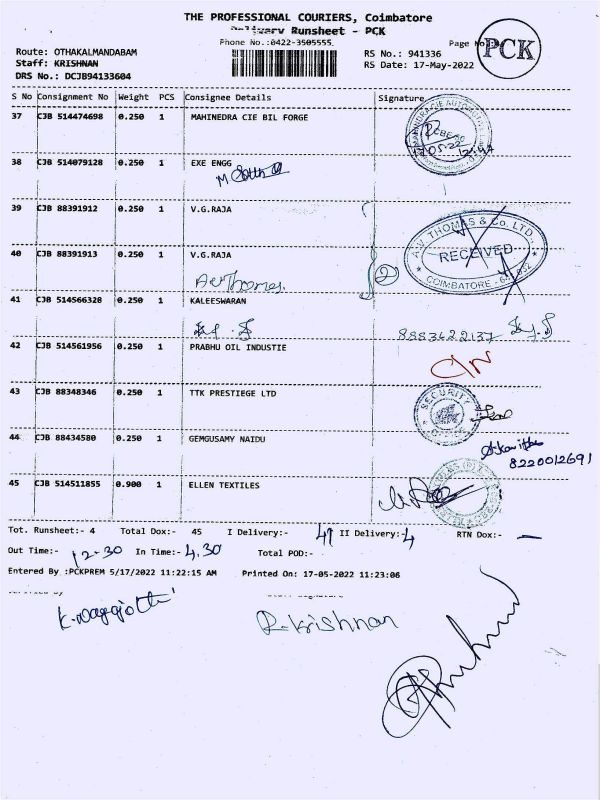 THE PROFESSIONAL COURIERS, Coimbatore
Delivery Runsheet - PCK
Phone No.:0422-3505555
Page No
PCK
Route: OTHAKALMANDABAM
Staff: KRISHNAN
DRS No.: DCJB94133604
RS No.: 941336
RS Date: 17-May-2022
S No Consignment No Weight PCS Consignee Details Signature
37 CJB 514474698 0.250 1 MAHINEDRA CIE BIL FORGE
38 CJB 514079128 0.250 1 EXE ENGG
39 CJB 88391912 0.250 1 V.G.RAJA
A.V. THOMAS & Co. LTD.
RECEIVED
COIMBATORE
40 CJB 88391913 0.250 1 V.G.RAJA
2
AVThomas
41 CJB 514566328 0.250 1 KALEESWARAN
8883422137
42 CJB 514561956 0.250 1 PRABHU OIL INDUSTIE
43 CJB 88348346 0.250 1 TTK PRESTIEGE LTD
SECURITY
44 CJB 88434580 0.250 1 GEMGUSAMY NAIDU
8220012691
45 CJB 514511855 0.900 1 ELLEN TEXTILES
Tot. Runsheet:- 4 Total Dox:- 45 I Delivery:- 41 II Delivery:- 4 RTN Dox:- —
Out Time:- 12-30 In Time:- 4.30 Total POD:-
Entered By :PCKPREM 5/17/2022 11:22:15 AM Printed On: 17-05-2022 11:23:06
R.Krishnan